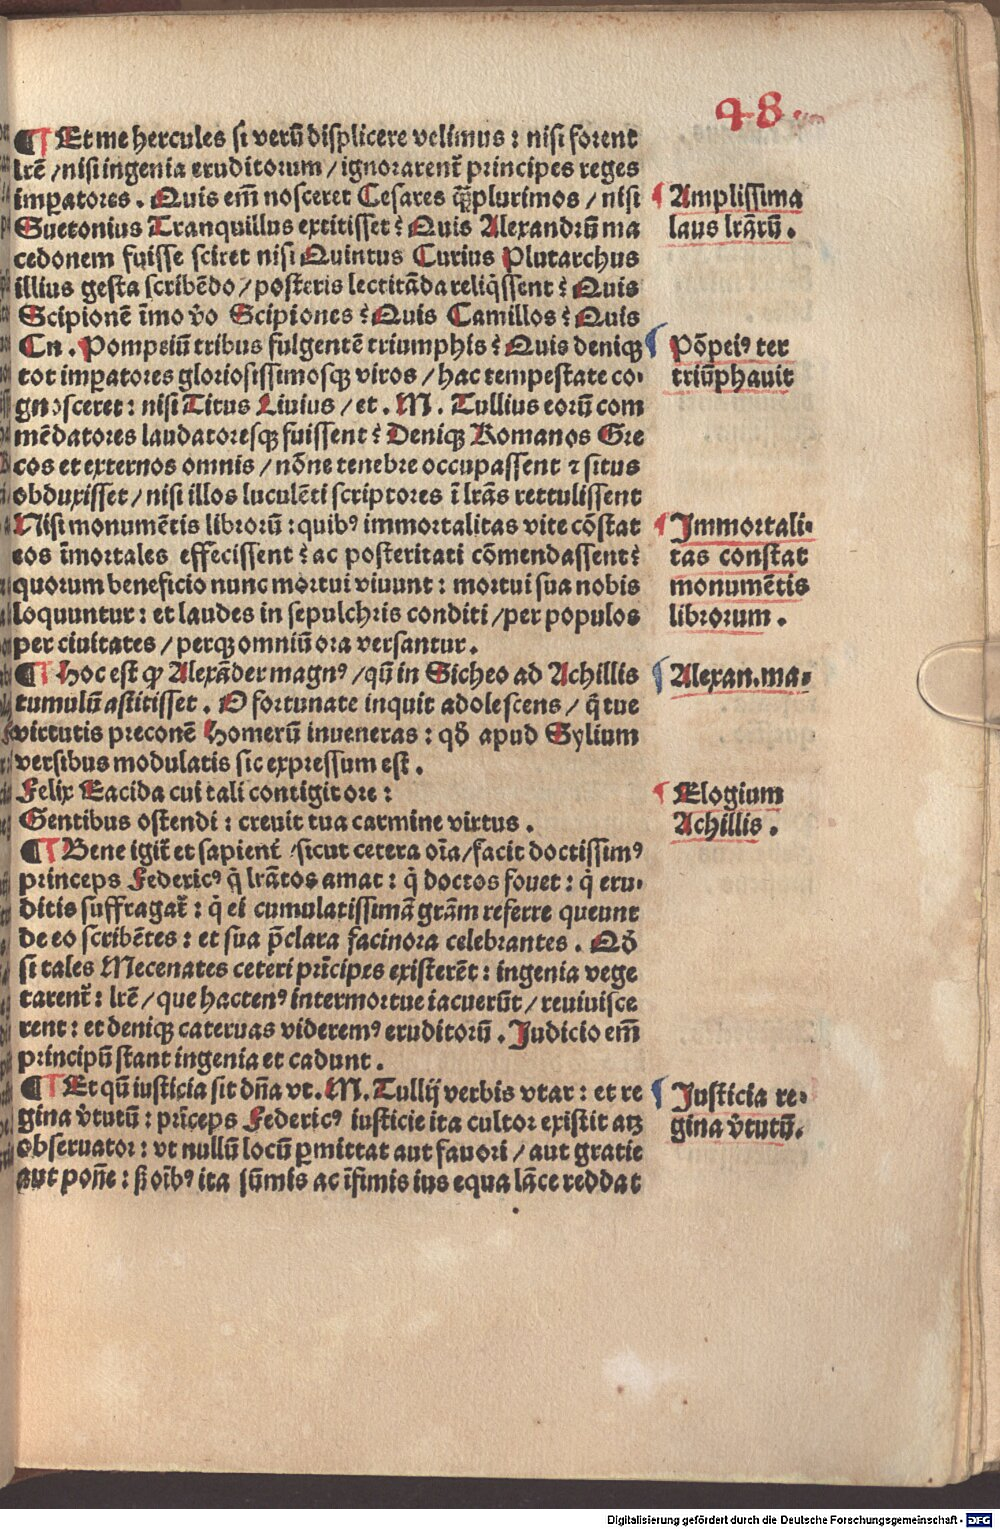 48
¶ Et me hercules si verū displicere velimus : nisi forent
lrē / nisi ingenia eruditorum / ignorarent᷑ principes reges
imꝑatores . Quis em̄ nosceret Cesares qꝫplurimos / nisi
Suetonius Tranquillus extitisset : Quis Alexandrū ma
cedonem fuisse sciret nisi Quintus Curius Plutarchus
illius gesta scribēdo / posteris lectitāda reliq̄ssent : Quis
Scipionē īmo v̄o Scipiones : Quis Camillos : Quis
Cn . Pompeiū tribus fulgentē triumphis : Quis deniqꝫ
tot imꝑatores gloriosissimosqꝫ viros / hac tempestate co-
gnosceret : nisi Titus Liuius / et . M . Tullius eorū com
mēdatores laudatoresqꝫ fuissent : Deniqꝫ Romanos Gre
cos et externos omnis / nōne tenebre occupassent ⁊ situs
obduxisset / nisi illos luculēti scriptores ī lrās rettulissent
Nisi monumētis librorū : quibꝰ immortalitas vite cōstat
eos īmortales effecissent : ac posteritati cōmendassent :
quorum beneficio nunc mortui viuunt : mortui sua nobis
loquuntur : et laudes in sepulchris conditi / per populos
per ciuitates / perqꝫ omniū ora versantur .
¶ Hoc est ꝙ Alexāder magnꝰ / qū in Sicheo ad Achillis
tumulū astitisset . O fortunate inquit adolescens / q̄ tue
virtutis preconē Homerū inueneras : qđ apud Sylium
versibus modulatis sic expressum est .
Felix Eacida cui tali contigit ore :
Gentibus ostendi : creuit tua carmine virtus .
¶ Bene igit᷑ et sapient᷑ sicut cetera oīa / facit doctissimꝰ
princeps Federicꝰ q̄ lrātos amat : q̄ doctos fouet : q̄ eru-
ditis suffragat᷑ : q̄ ei cumulatissimā grām referre queunt
de eo scribētes : et sua p̄clara facinora celebrantes . Qđ
si tales Mecenates ceteri prīcipes existerēt : ingenia vege
tarent᷑ : lrē / que hactenꝰ intermortue iacuerūt / reuiuisce
rent : et deniqꝫ cateruas videremꝰ eruditorū . Judicio em̄
principū stant ingenia et cadunt .
¶ Et qū iusticia sit dn̄a vt . M . Tullij verbis vtar : et re
gina v̄tutū : prīceps Federicꝰ iusticie ita cultor existit atqꝫ
obseruator : vt nullū locū ꝑmittat aut fauori / aut gratie
aut pōne : ß oībꝰ ita sūmis ac īfimis ius equa lāce reddat
Amplissima
laus lrārū .
Pōpeiꝰ ter
triūphauit
Immortali-
tas constat
monumētis
librorum .
Alexan. ma-
Elogium
Achillis .
Justicia re-
gina v̄tutū.
Digitalisierung gefördert durch die Deutsche Forschungsgemeinschaft - DFG